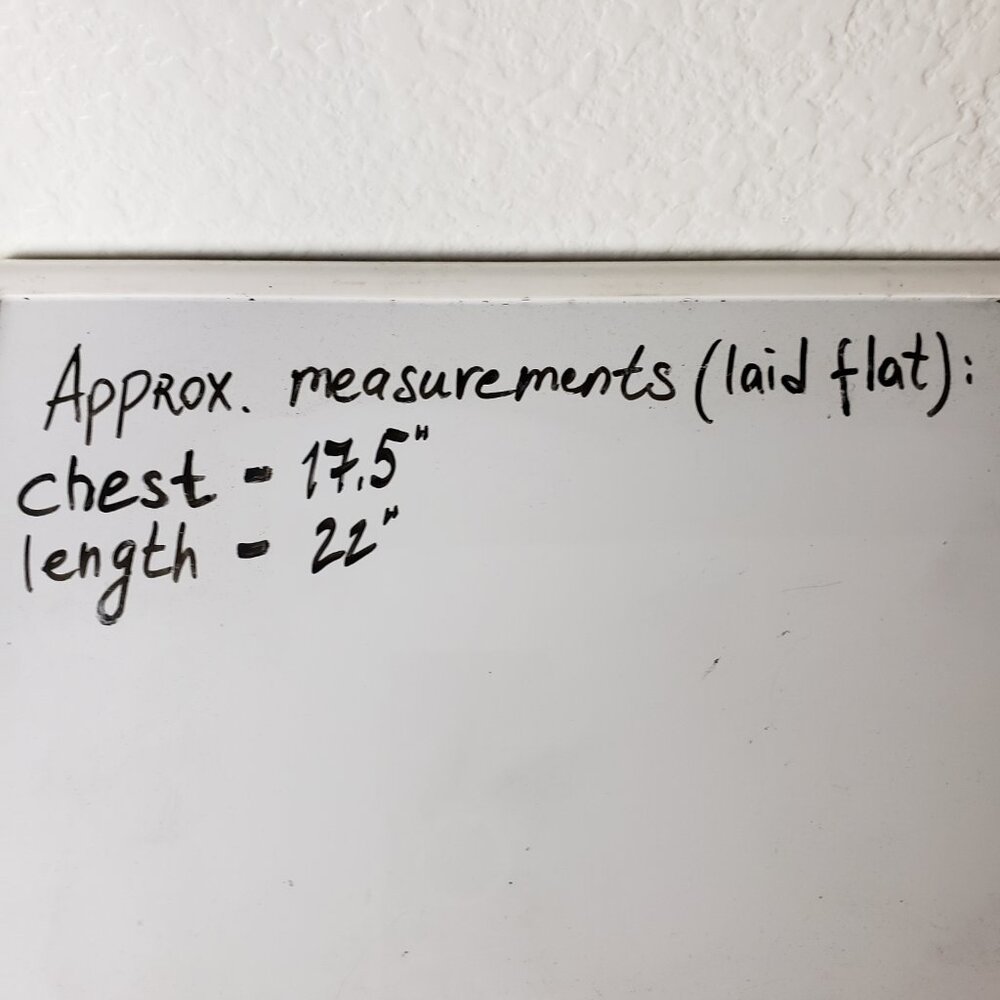 Approx. measurements (laid flat):
chest - 17.5"
length - 22"